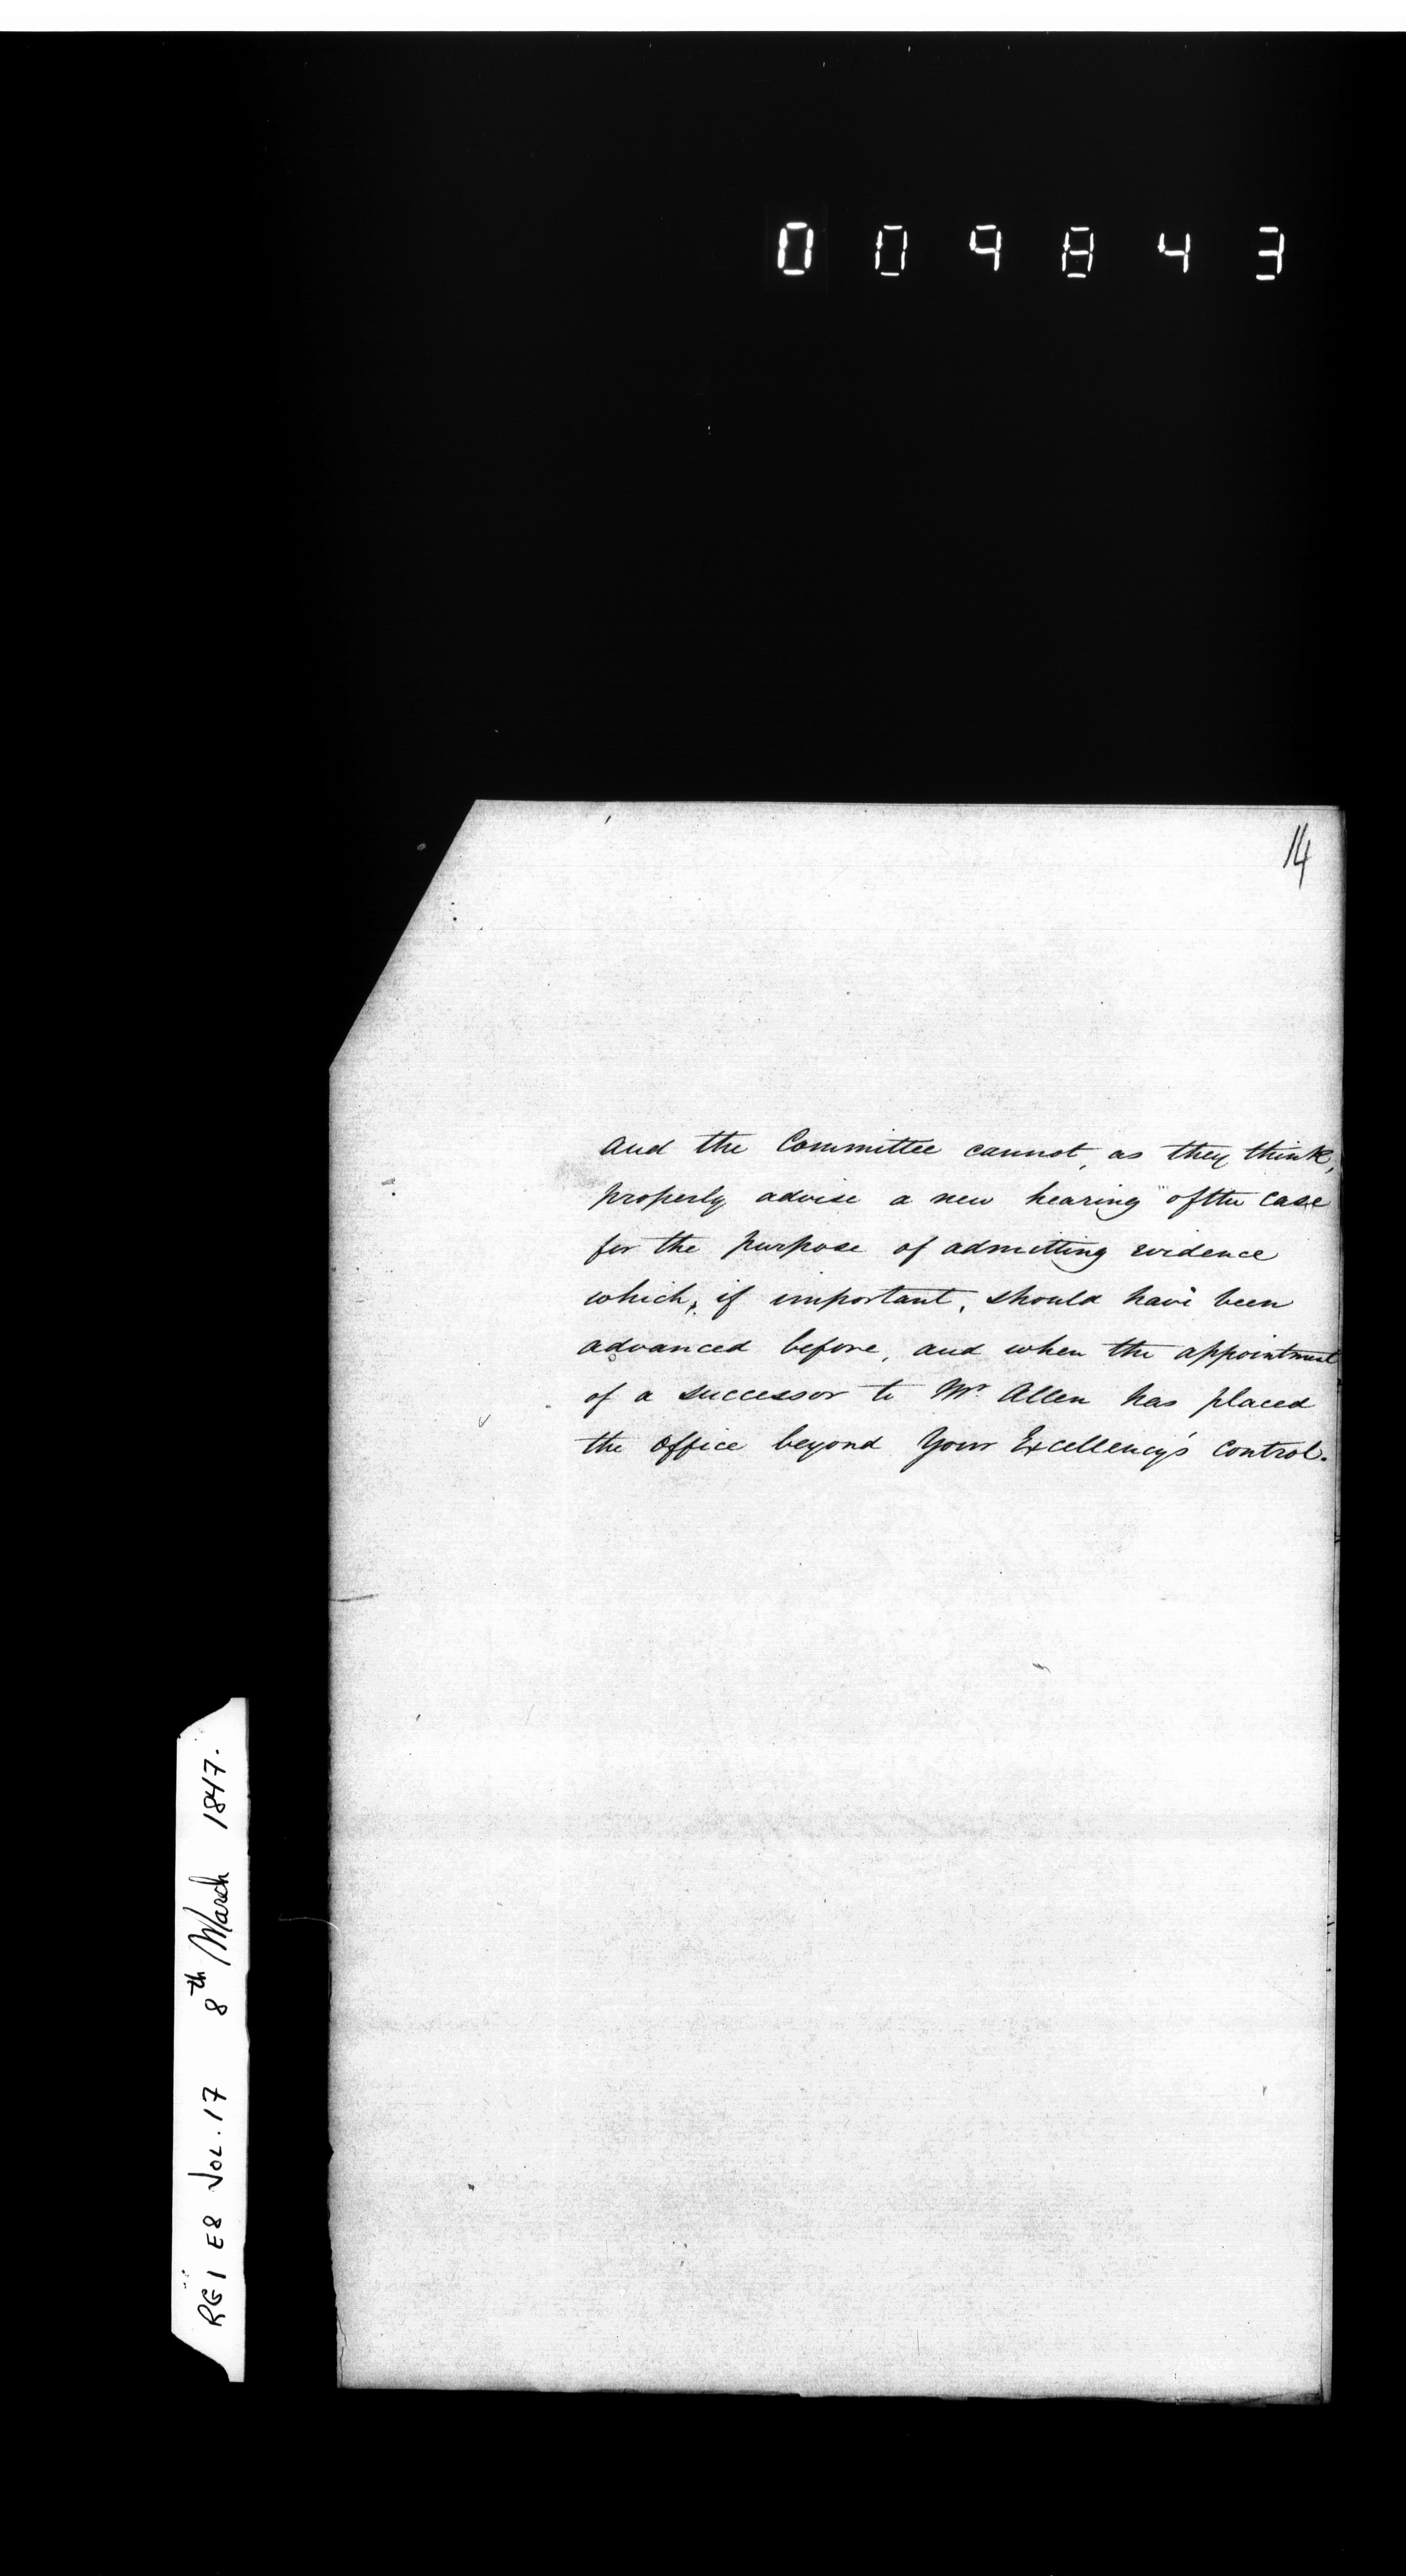 009843
14
and the Committee cannot, as they think,
properly advise a new hearing of the case
for the purpose of admitting evidence
which, if important, should have been
advanced before, and when the appointment
of a successor to Mr. Allen has placed
the office beyond Your Excellency's control.
RG1 E8 VOL. 17 8th March 1847.